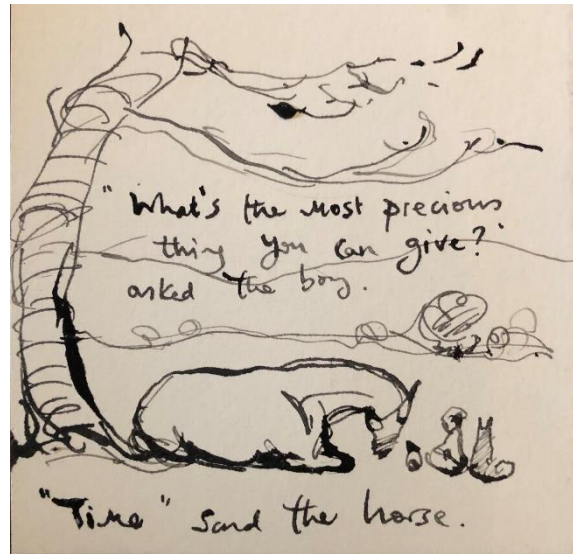 "What's the most precious
thing you can give?'
asked the boy.
"Time" said the horse.